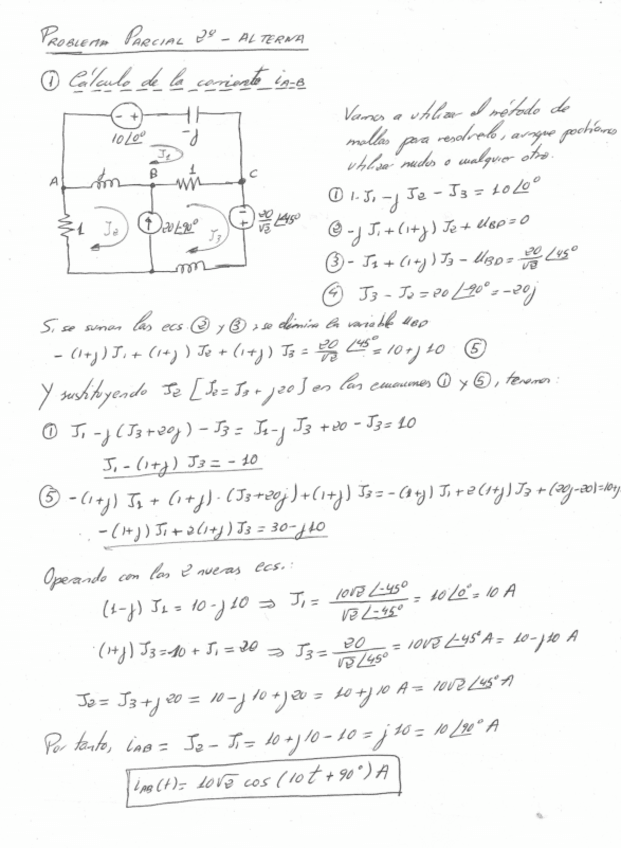 PROBLEMA PARCIAL 2º - ALTERNA
① Cálculo de la corriente i_A-B
10∠0º
- +
-j
J₁
A
j
B
1
C
1
J₂
20∠-90º
J₃
-
+
20/√2 ∠45º
j
Vamos a utilizar el método de
mallas para resolverlo, aunque podríamos
utilizar nudos o cualquier otro.
① 1·J₁ - j J₂ - J₃ = 10∠0º
② -j J₁ + (1+j) J₂ + U_BD = 0
③ - J₁ + (1+j) J₃ - U_BD = 20/√2 ∠45º
④ J₃ - J₂ = 20∠-90º = -20j
Si se suman las ecs. ② y ③, se elimina la variable U_BD
- (1+j) J₁ + (1+j) J₂ + (1+j) J₃ = 20/√2 ∠45º = 10+j10 ⑤
Y sustituyendo J₂ [J₂ = J₃ + j20] en las ecuaciones ① y ⑤, tenemos:
① J₁ - j (J₃+20j) - J₃ = J₁ - j J₃ + 20 - J₃ = 10
J₁ - (1+j) J₃ = -10
⑤ -(1+j) J₁ + (1+j)·(J₃+20j) + (1+j) J₃ = -(1+j) J₁ + 2(1+j) J₃ + (20j-20) = 10+j
-(1+j) J₁ + 2(1+j) J₃ = 30-j10
Operando con las 2 nuevas ecs.:
(1-j) J₁ = 10-j10 ⇒ J₁ = 10√2∠-45º / √2∠-45º = 10∠0º = 10 A
(1+j) J₃ = 10 + J₁ = 20 ⇒ J₃ = 20 / √2∠45º = 10√2∠-45º A = 10-j10 A
J₂ = J₃ + j20 = 10-j10 + j20 = 10+j10 A = 10√2∠45º A
Por tanto, i_AB = J₂ - J₁ = 10+j10-10 = j10 = 10∠90º A
i_AB(t) = 10√2 cos (10t + 90º) A